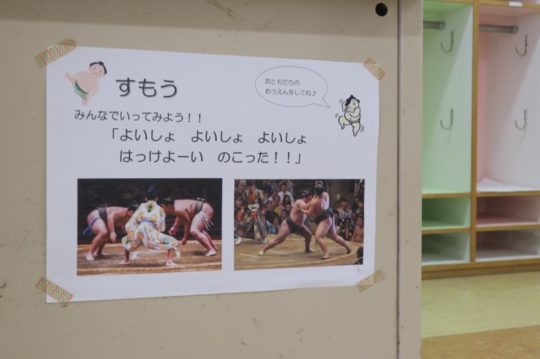 すもう
おともだちの
おうえんをしてね♪
みんなでいってみよう！！
「よいしょ　よいしょ　よいしょ
はっけよーい　のこった！！」